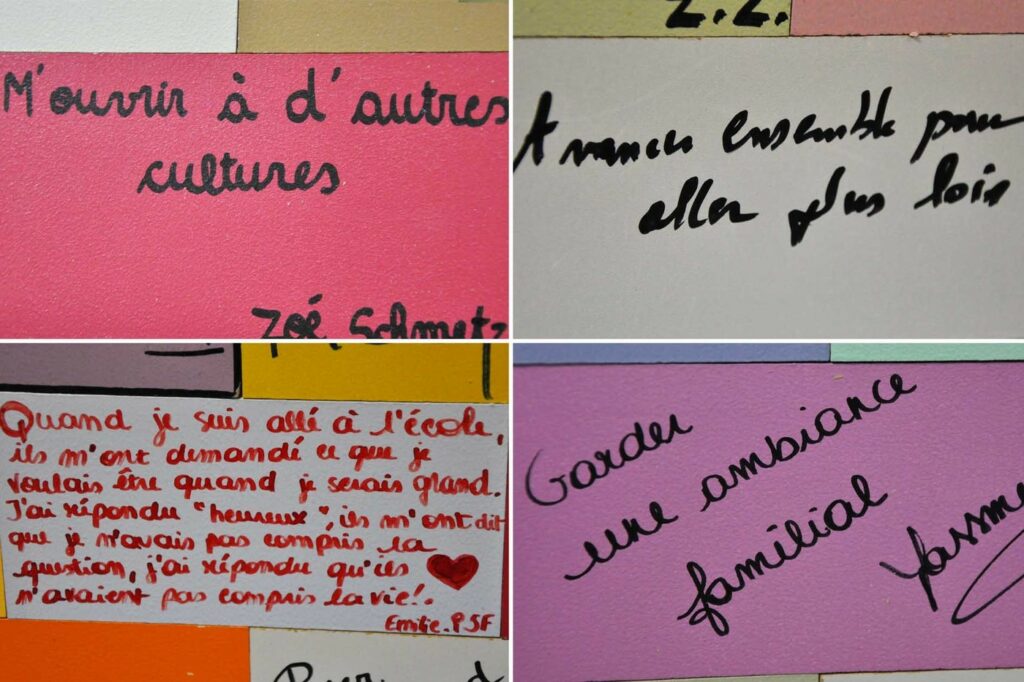 M'ouvrir à d'autres
cultures
Zoé Schmetz
Z.Z.
Avancer ensemble pour
aller plus loin
Quand je suis allé à l'école,
ils m'ont demandé ce que je
voulais être quand je serais gland.
J'ai répondu "heureux", ils m'ont dit
que je n'avais pas compris la
question, j'ai répondu qu'ils
n'avaient pas compris la vie!.
Emilie.PSF
Garder
une ambiance
familial